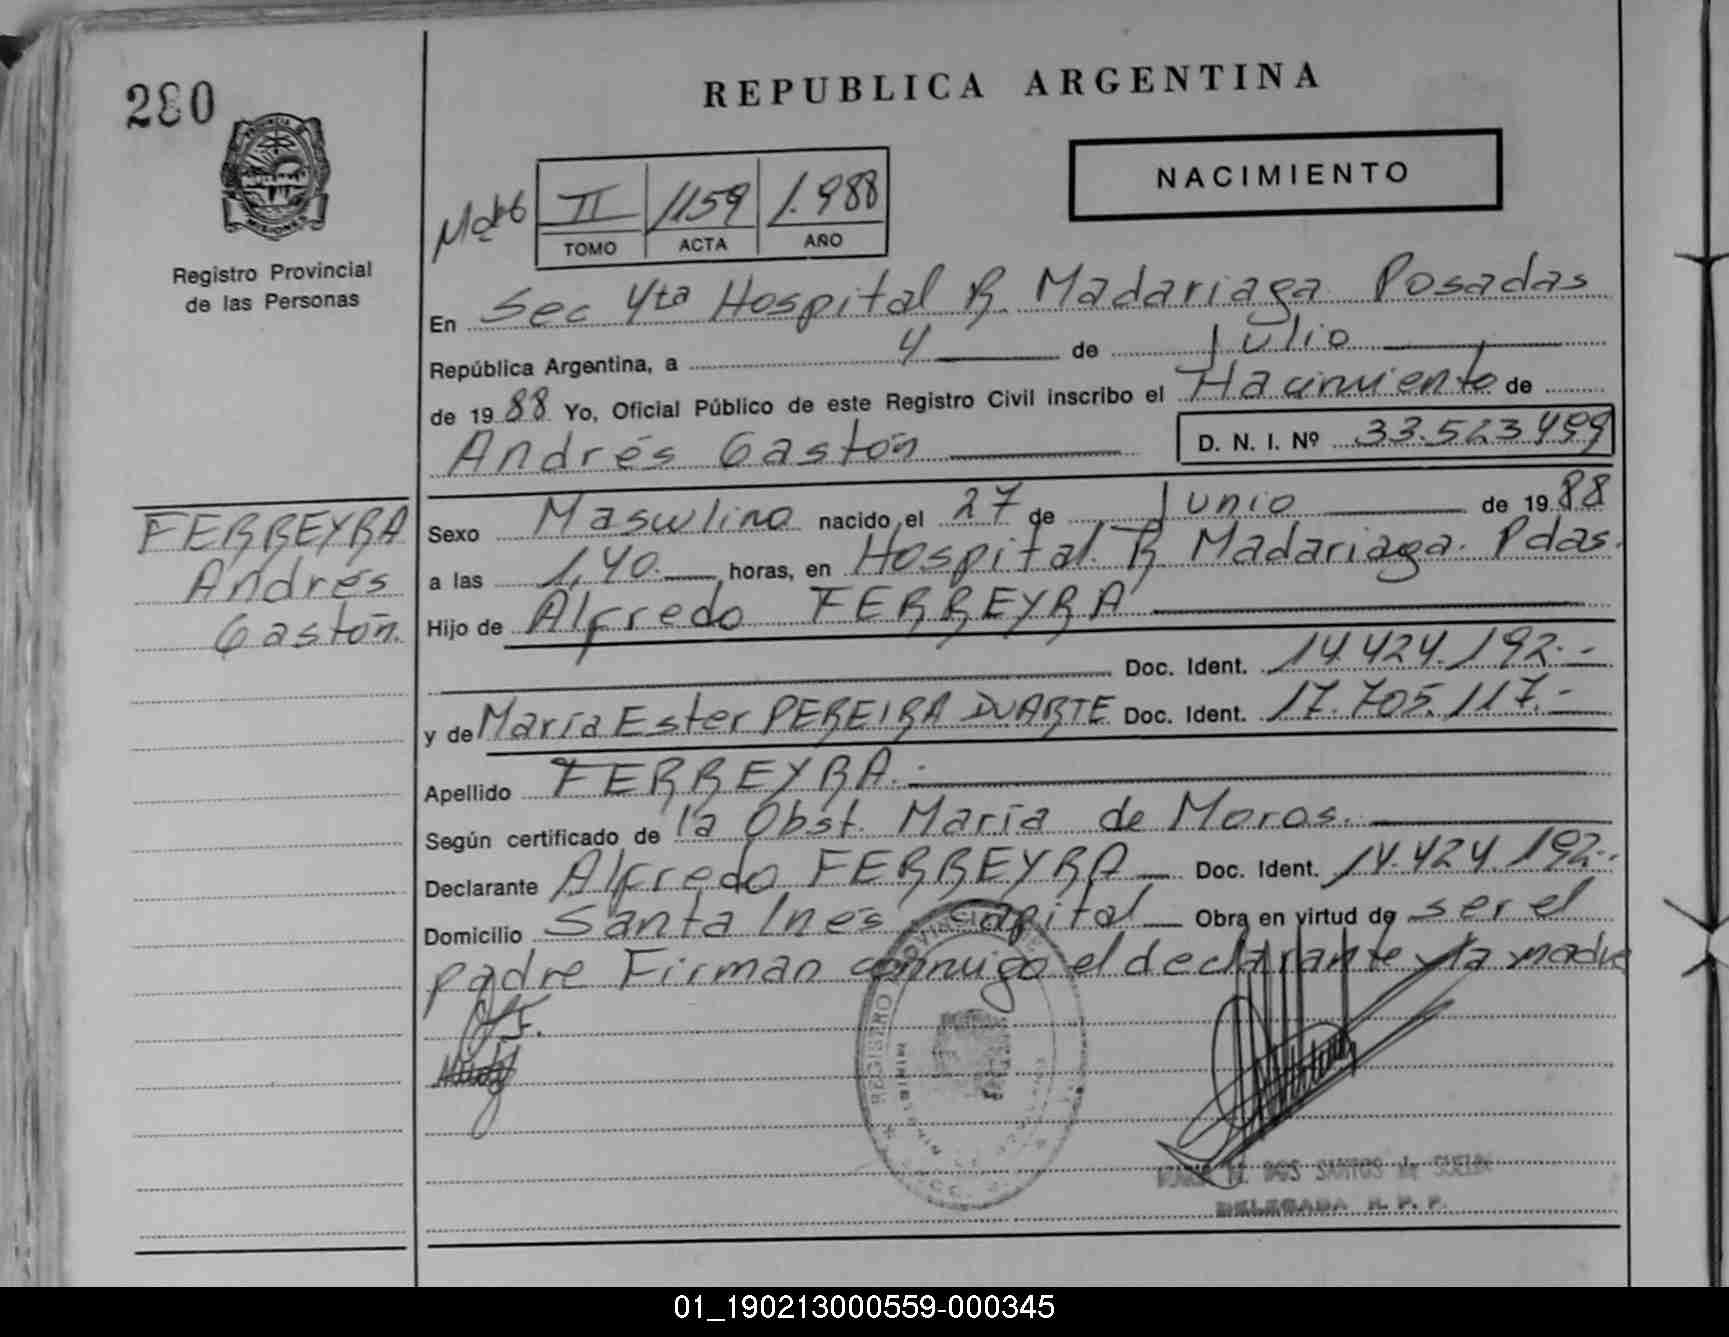 280
PROVINCIA DE
MISIONES
Registro Provincial
de las Personas
REPUBLICA ARGENTINA
NACIMIENTO
II 1159 1.988
TOMO ACTA AÑO
En Sec 4ta Hospital R. Madariaga Posadas
República Argentina, a 4 de Julio
de 19 88 Yo, Oficial Público de este Registro Civil inscribo el Nacimiento de
Andrés Gastón D. N. I. Nº 33.523499
FERREYRA
Andrés
Gastón.
Sexo Masculino nacido el 27 de Junio de 19 88
a las 1,40. horas, en Hospital. R Madariaga. Pdas.
Hijo de Alfredo FERREYRA
Doc. Ident. 14.424.192.-
y de María Ester PEREIRA DUARTE Doc. Ident. 17.705.117.-
Apellido FERREYRA.-
Según certificado de la Obst. María de Moros.
Declarante Alfredo FERREYRA Doc. Ident. 14.424.192.-
Domicilio Santa Inés Capital Obra en virtud de ser el
padre Firman conmigo el declarante y la madre
DOS SANTOS de
DELEGADA R. P. P.
01_190213000559-000345